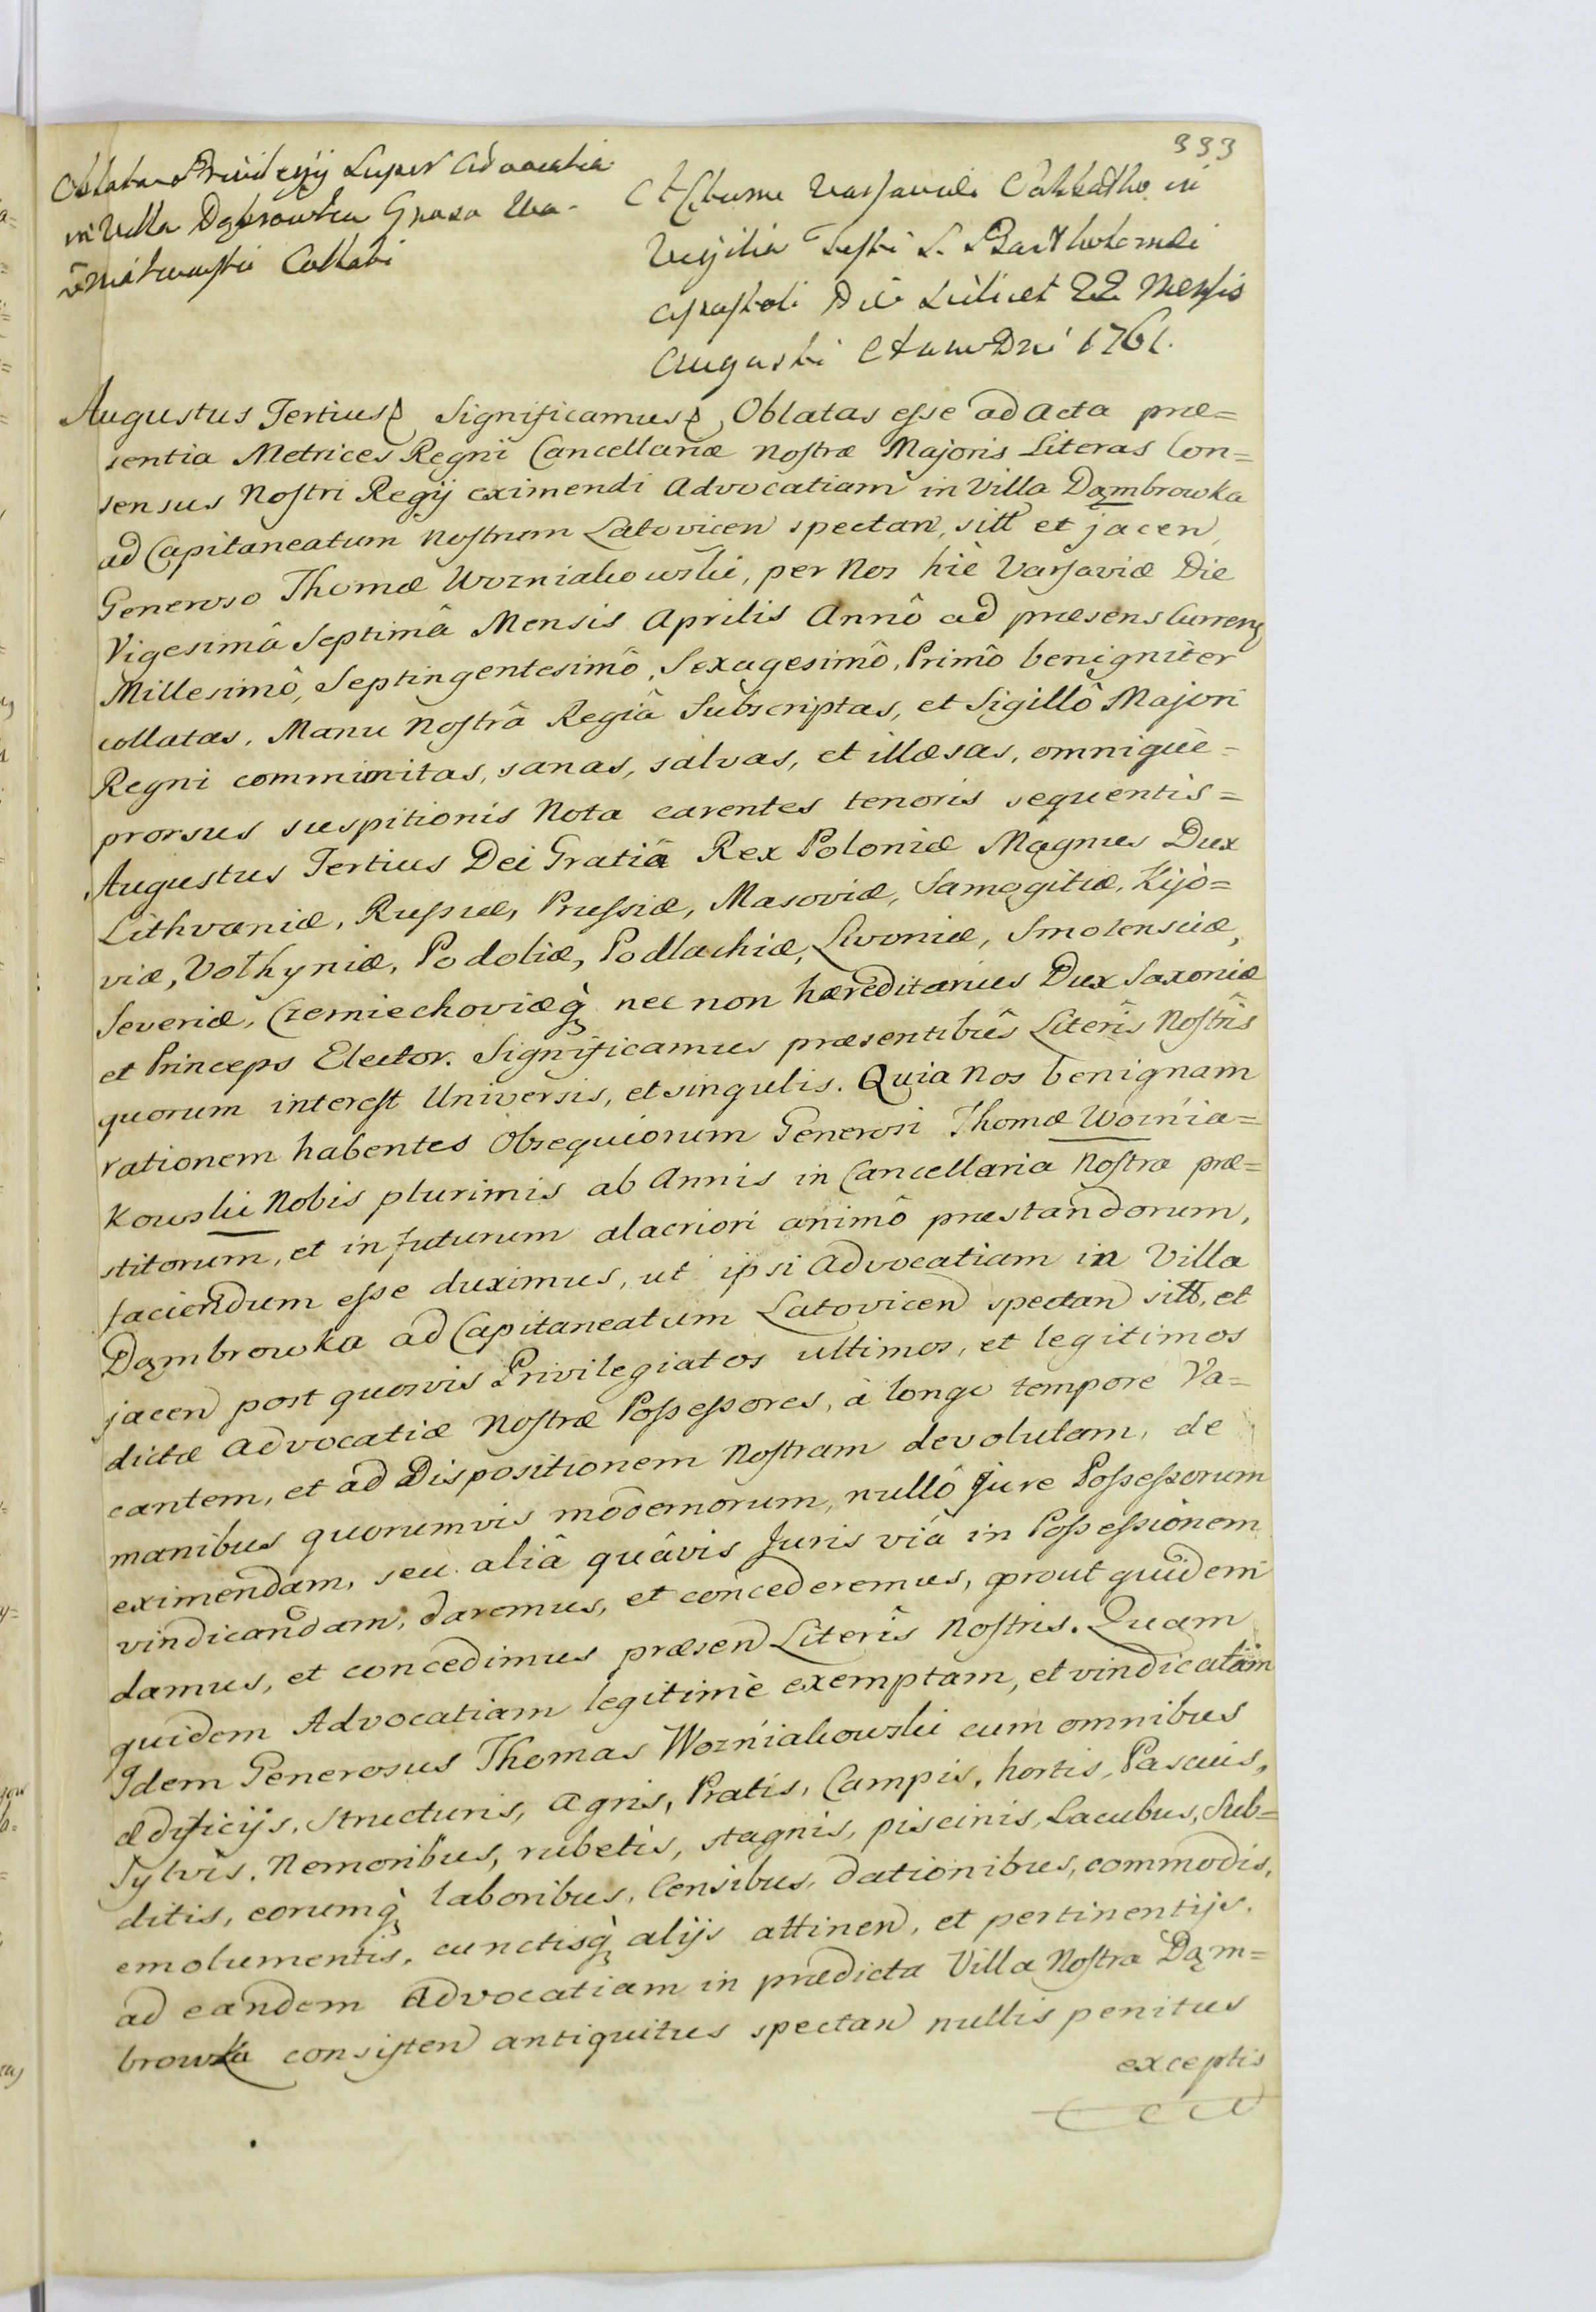 333
Oblata Privilegij Super Advocatia
in Villa Dąbrowka Gnoso Wo-
źniakowski Collati
Actum Varsaviæ Sabbatho in
Vigilia Festi S. Bartholomæi
Apostoli Die Scilicet 22 Mensis
Augusti Anno Dni 1761.
Augustus Tertius Significamus Oblatas esse ad Acta præ=
sentia Metrices Regni Cancellariæ nostræ Majoris Literas Con=
sensus Nostri Regij eximendi Advocatiam in Villa Dąmbrowka
ad Capitaneatum nostrum Latovicen spectan, sitt et jacen,
Generoso Thomæ Wozniakowski, per Nos hìc Varsaviæ Die
Vigesimâ Septimâ Mensis Aprilis Annô ad præsens Curreng
Millesimô, Septingentesimô, Sexagesimô, Primô benigniter
collatas, Manu Nostrâ Regiâ Subscriptas, et Sigillô Majori
Regni communitas, sanas, salvas, et illæsas, omniquè=
prorsus suspitionis Nota carentes tenoris sequentis=
Augustus Tertius Dei Gratiâ Rex Poloniæ Magnus Dux
Lithvaniæ, Russiæ, Prussiæ, Masoviæ, Samogitiæ, Kijò=
viæ, Volhyniæ, Podoliæ, Podlachiæ, Livoniæ, Smolensciæ,
Severiæ, Czerniechoviæq̀ nec non hæreditarius Dux Saxoniæ
et Princeps Elector. Significamus præsentibûs Literîs Nostrîs
quorum interest Universis, et singulis. Quia Nos benignam
rationem habentes Obsequiorum Generosi Thomæ Woźnia=
kowski Nobis plurimis ab Annis in Cancellaria Nostra præ=
stitorum, et in futurum alacriori animô præstandorum,
faciendum esse duximus, ut ipsi Advocatiam in Villa
Dąmbrowka ad Capitaneatum Latovicen spectan sitt, et
jacen post quosvis Privilegiatos ultimos, et legitimos
dictæ Advocatiæ Nostræ Possessores, à longo tempore Va=
cantem, et ad Dispositionem Nostram devolutam, de
manibus quorumvis modernorum, nullô Jure Possessorum
eximendam, seu aliâ quâvis Juris viâ in Possessionem
vindicandam, daremus, et concederemus, prout quidem
damus, et concedimus præsen Literîs Nostris. Quam
quidem Advocatiam legitimè exemptam, et vindicatam
Idem Generosus Thomas Woźniakowski cum omnibus
ædificijs, structuris, agris, Pratis, Campis, hortis, Pascuis,
Sylvis, Nemoribus, rubetis, stagnis, piscinis, Lacubus, Sub=
ditis, eorumq̀ laboribus, Censibus, dationibus, commodis,
emolumentis, cunctisq̀ alijs attinen, et pertinentijs,
ad eandem Advocatiam in prædicta Villa Nostra Dąm=
browka consisten antiquitus spectan nullis penitus
exceptis